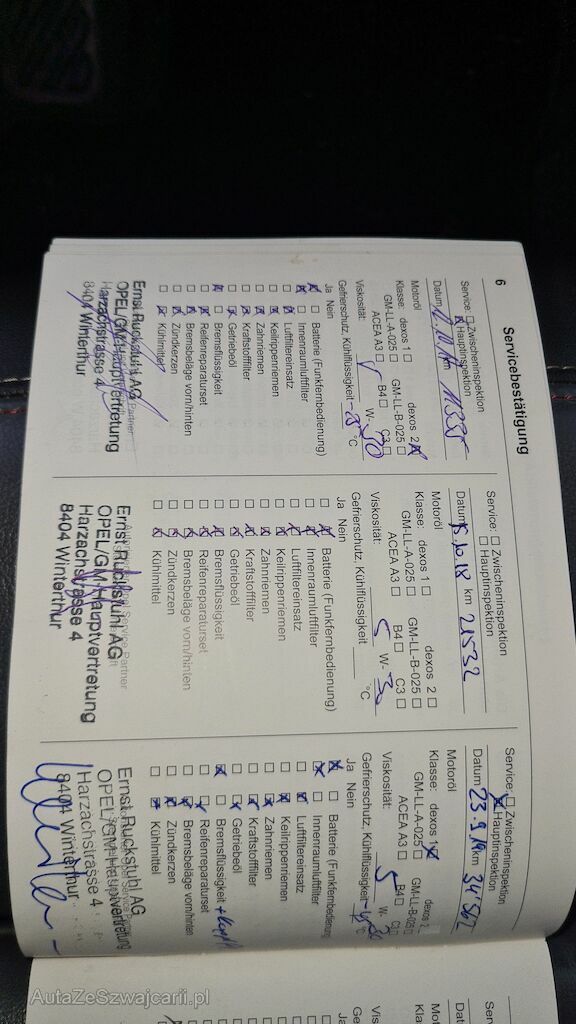 6
Servicebestätigung
Service: Zwischeninspektion
Hauptinspektion
Datum km 11335
Motoröl
Klasse: dexos 1 dexos 2
GM-LL-A-025 GM-LL-B-025
ACEA A3 B4 C3
Viskosität: W- 30
Gefrierschutz, Kühlflüssigkeit °C
Ja Nein
Batterie (Funkfernbedienung)
Innenraumluftfilter
Luftfiltereinsatz
Keilrippenriemen
Zahnriemen
Kraftstofffilter
Getriebeöl
Bremsflüssigkeit
Reifenreparaturset
Bremsbeläge vorn/hinten
Zündkerzen
Kühlmittel
Ernst Ruckstuhl AG
OPEL/GM-Hauptvertretung
Harzachstrasse 4
8404 Winterthur
Service: Zwischeninspektion
Hauptinspektion
Datum km 21532
Motoröl
Klasse: dexos 1 dexos 2
GM-LL-A-025 GM-LL-B-025
ACEA A3 B4 C3
Viskosität: 5 W- 30
Gefrierschutz, Kühlflüssigkeit °C
Ja Nein
Batterie (Funkfernbedienung)
Innenraumluftfilter
Luftfiltereinsatz
Keilrippenriemen
Zahnriemen
Kraftstofffilter
Getriebeöl
Bremsflüssigkeit
Reifenreparaturset
Bremsbeläge vorn/hinten
Zündkerzen
Kühlmittel
Ernst Ruckstuhl AG
OPEL/GM-Hauptvertretung
Harzachstrasse 4
8404 Winterthur
Service: Zwischeninspektion
Hauptinspektion
Datum 23.9.19 km 34'562
Motoröl
Klasse: dexos 1 dexos 2
GM-LL-A-025 GM-LL-B-025
ACEA A3 B4
Viskosität: 5 W-
Gefrierschutz, Kühlflüssigkeit
Ja Nein
Batterie (Funkfernbedienung)
Innenraumluftfilter
Luftfiltereinsatz
Keilrippenriemen
Zahnriemen
Kraftstofffilter
Getriebeöl
Bremsflüssigkeit
Reifenreparaturset
Bremsbeläge vorn/hinten
Zündkerzen
Kühlmittel
Ernst Ruckstuhl AG
OPEL/GM-Hauptvertretung
Harzachstrasse 4
8404 Winterthur
AutaZeSzwajcarii.pl